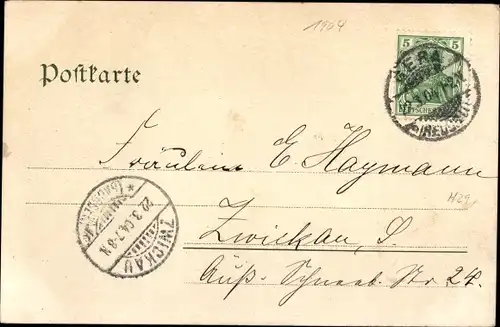 1904
Postkarte
5 5
GERA
(REUSS)
Fräulein E. Haymann
Zwickau, S.
Äuß. Schneeb. Str. 24.
ZWICKAU
22.3.04.7-8.N.
* (SACHSEN)